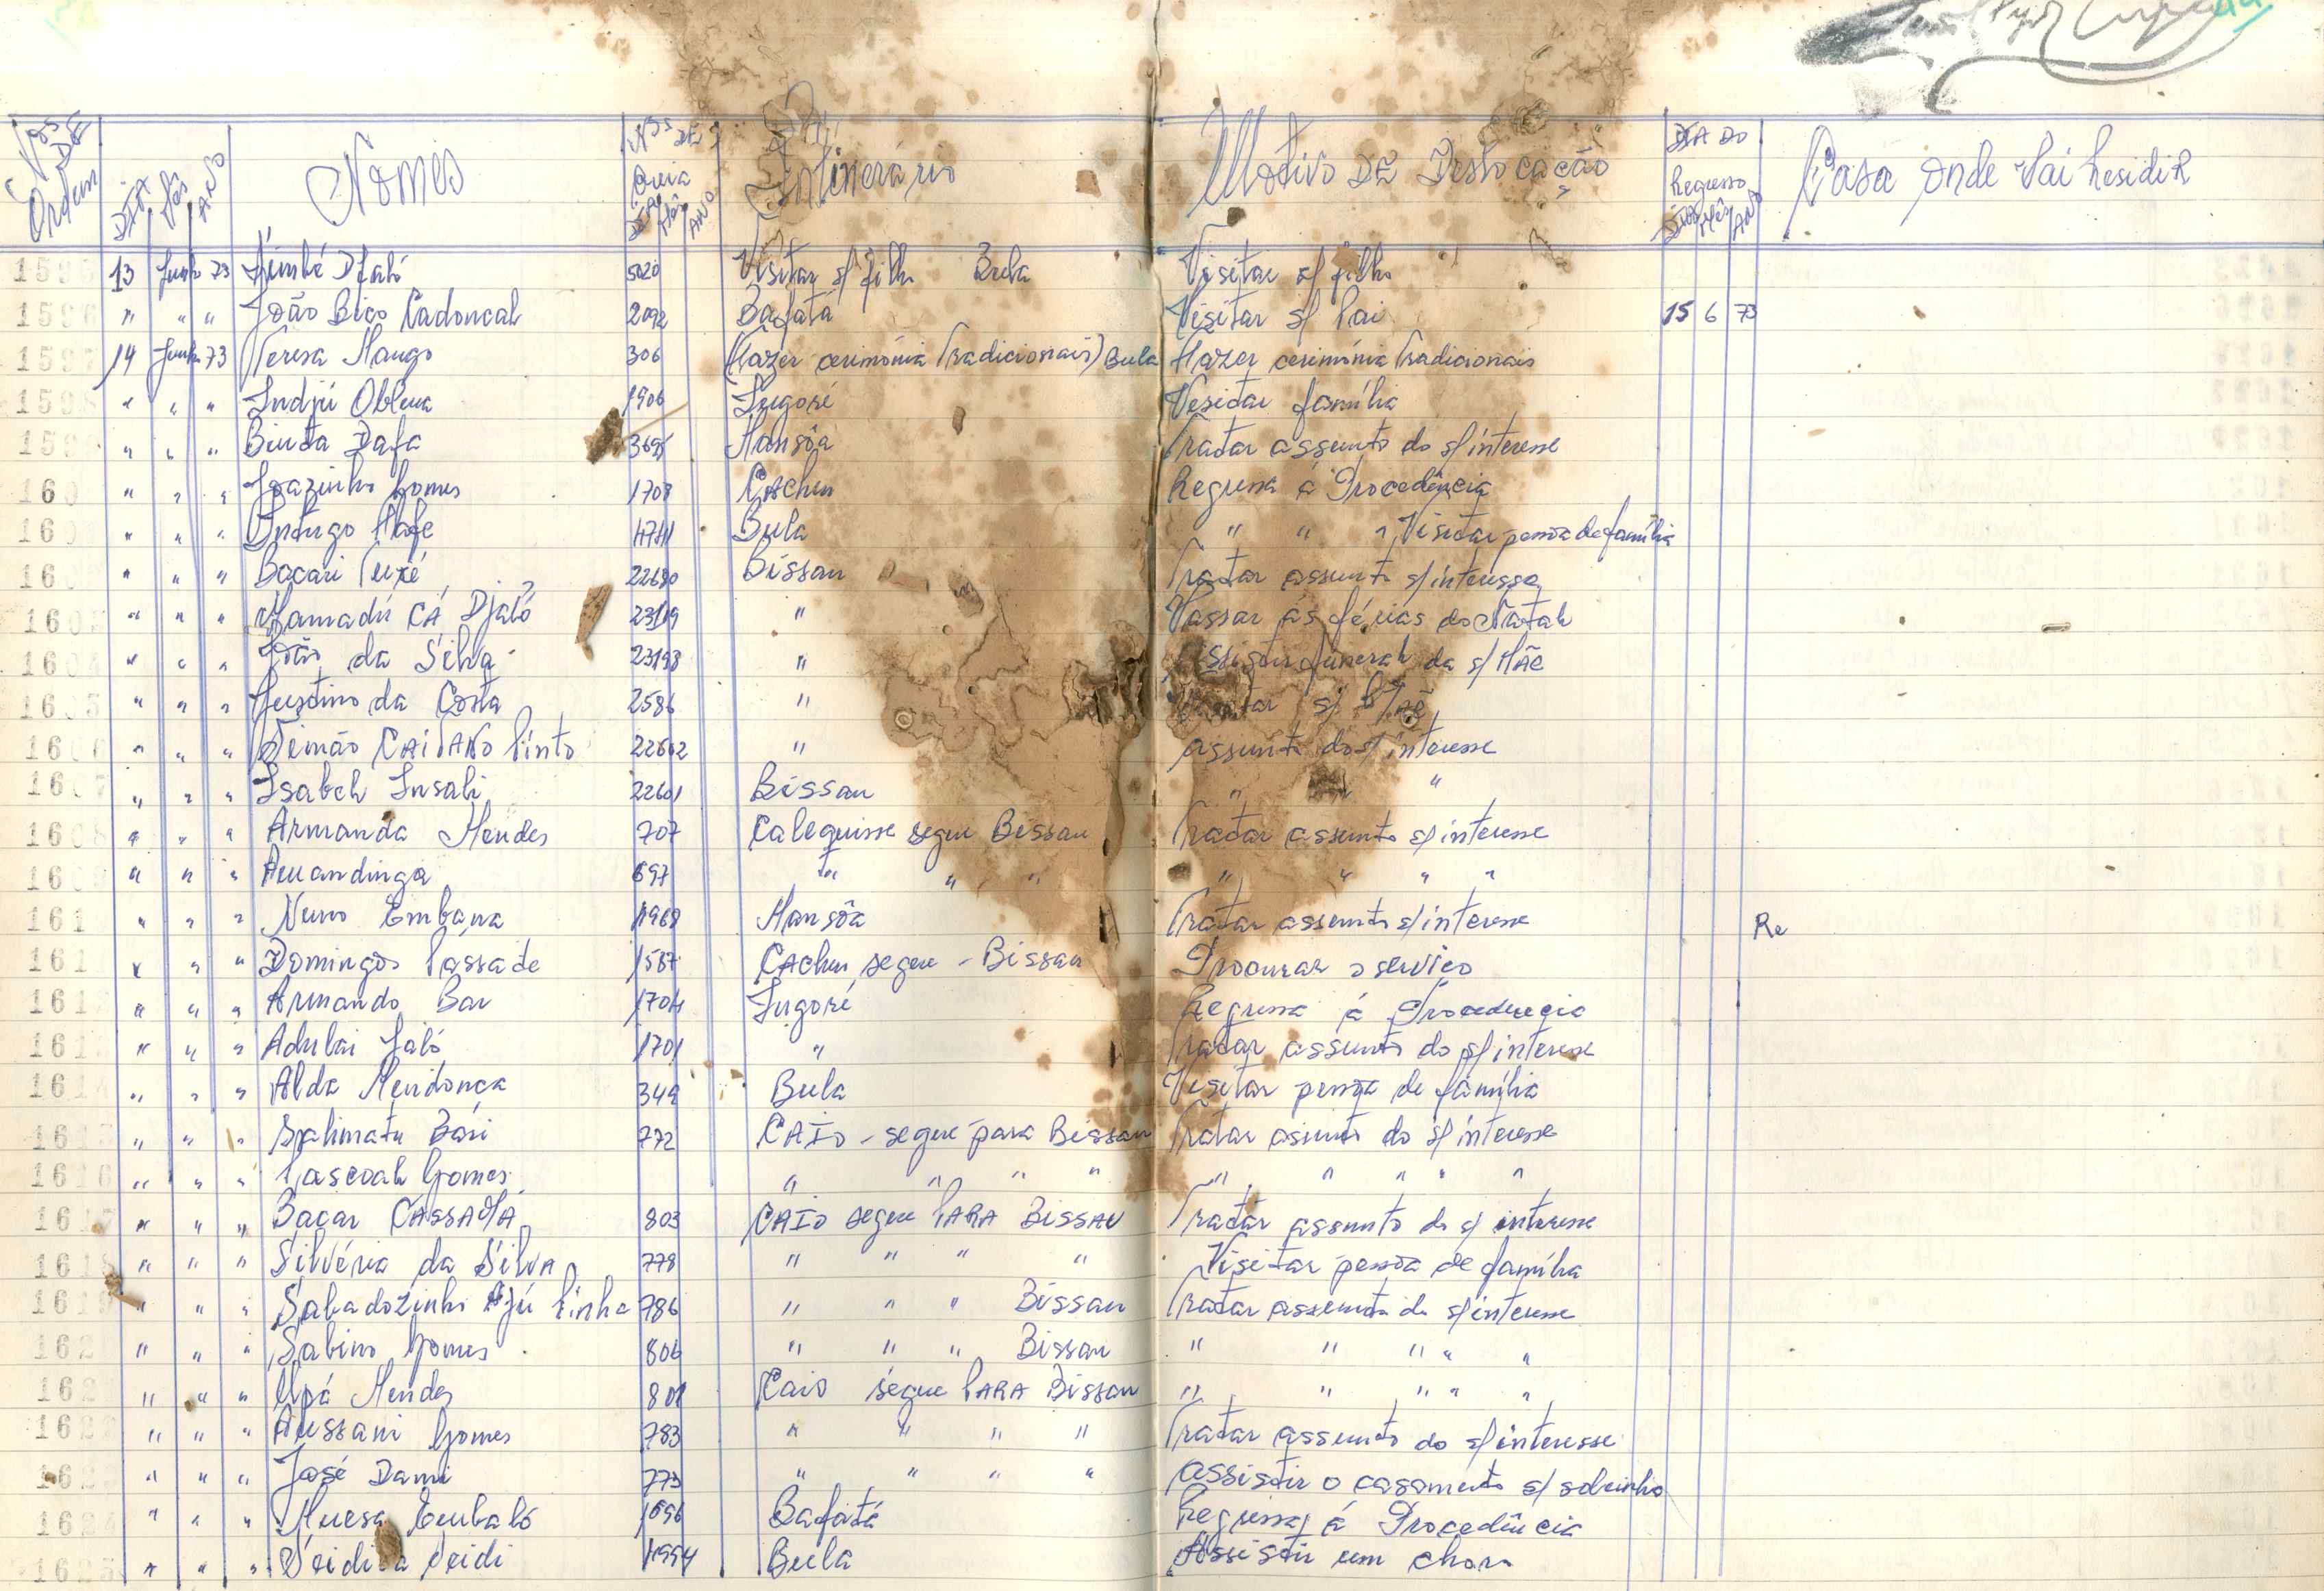 Nos DE Ordem DIA Mês ANO Nomes Nos DE Guia DIA Mês ANO Itinerário Motivo DE Deslocação DIA DO Regresso DIA Mês ANO Casa onde Vai Residir
159 13 Junho 73 Djaló 5020 Visitar s/ filho Bula Visitar s/ filho
1596 " " " João Bico Cadoncal 2092 Bafatá Visitar s/ Pai 15 6 73
159 14 Junho 73 Teresa Mango 306 (Fazer cerimónia Tradicionais) Bula Fazer cerimónia Tradicionais
159 " " " Indjú 1906 Ingoré Vesitar família
159 " " " Binta Dafa 3695 Mansôa Tratar assunto do s/ interesse
160 " " " Joazinho Gomes 1708 Cacheu Regressa á Procedência
160 " " " Bula " " " Visitar pessoa de família
160 " " " Bacari Turé 22680 Bissau Tratar assunto s/ interesse
160 " " " Mamadú CÁ Djaló 23119 " Passar ás férias do Natal
1604 " " " João da Silva 23198 " Assistir funeral da s/ Mãe
1605 " " " Justino da Costa 2586 " s/ Mãe
1606 " " " Simão CAITANO Pinto 22602 " assunto do s/ interesse
1607 " " " Isabel Insali 22601 Bissau " " "
1608 " " " Armanda Mendes 707 Calequisse segue Bissau Tratar assunto s/ interesse
160 " " " Auandinga 697 " " " " " " "
161 " " " Nuno Embana 1968 Mansôa Tratar assunto s/ interesse Re
161 " " " Domingos Passade 1587 Cacheu segue - Bissau Procurar o serviço
161 " " " Armando Bar 1704 Ingoré Regressa á Procedencia
161 " " " Adulai Jaló 1701 " Tratar assunto do s/ interesse
1614 " " " Alda Mendonça 349 Bula Visitar pessoa de família
161 " " " Bári 772 CAIO - segue para Bissau Tratar assunto do s/ interesse
1616 " " " Pascoal Gomes " " " " " " " " "
1617 " " " Bacar CASSAMÁ 803 CAIO segue PARA BISSAU Tratar assunto do s/ interesse
1618 " " " Silvéria da Silva 778 " " " " Visitar pessoa de família
1619 " " " Sabadozinho Djú Pinho 786 " " " Bissau Tratar assunto do s/ interesse
162 " " " Sabino Gomes 806 " " " Bissau " " " " "
162 " " " Upá Mendes 801 Caio segue PARA Bissau " " " " "
162 " " " Aussani Gomes 783 " " " " Tratar assunto do s/ interesse
162 " " " José Dami 773 " " " " assistir o casamento s/ sobrinho
162 " " " Embaló 1096 Bafatá Regressa á Procedência
1625 " " " Seidi 1994 Bula Assistir um choro